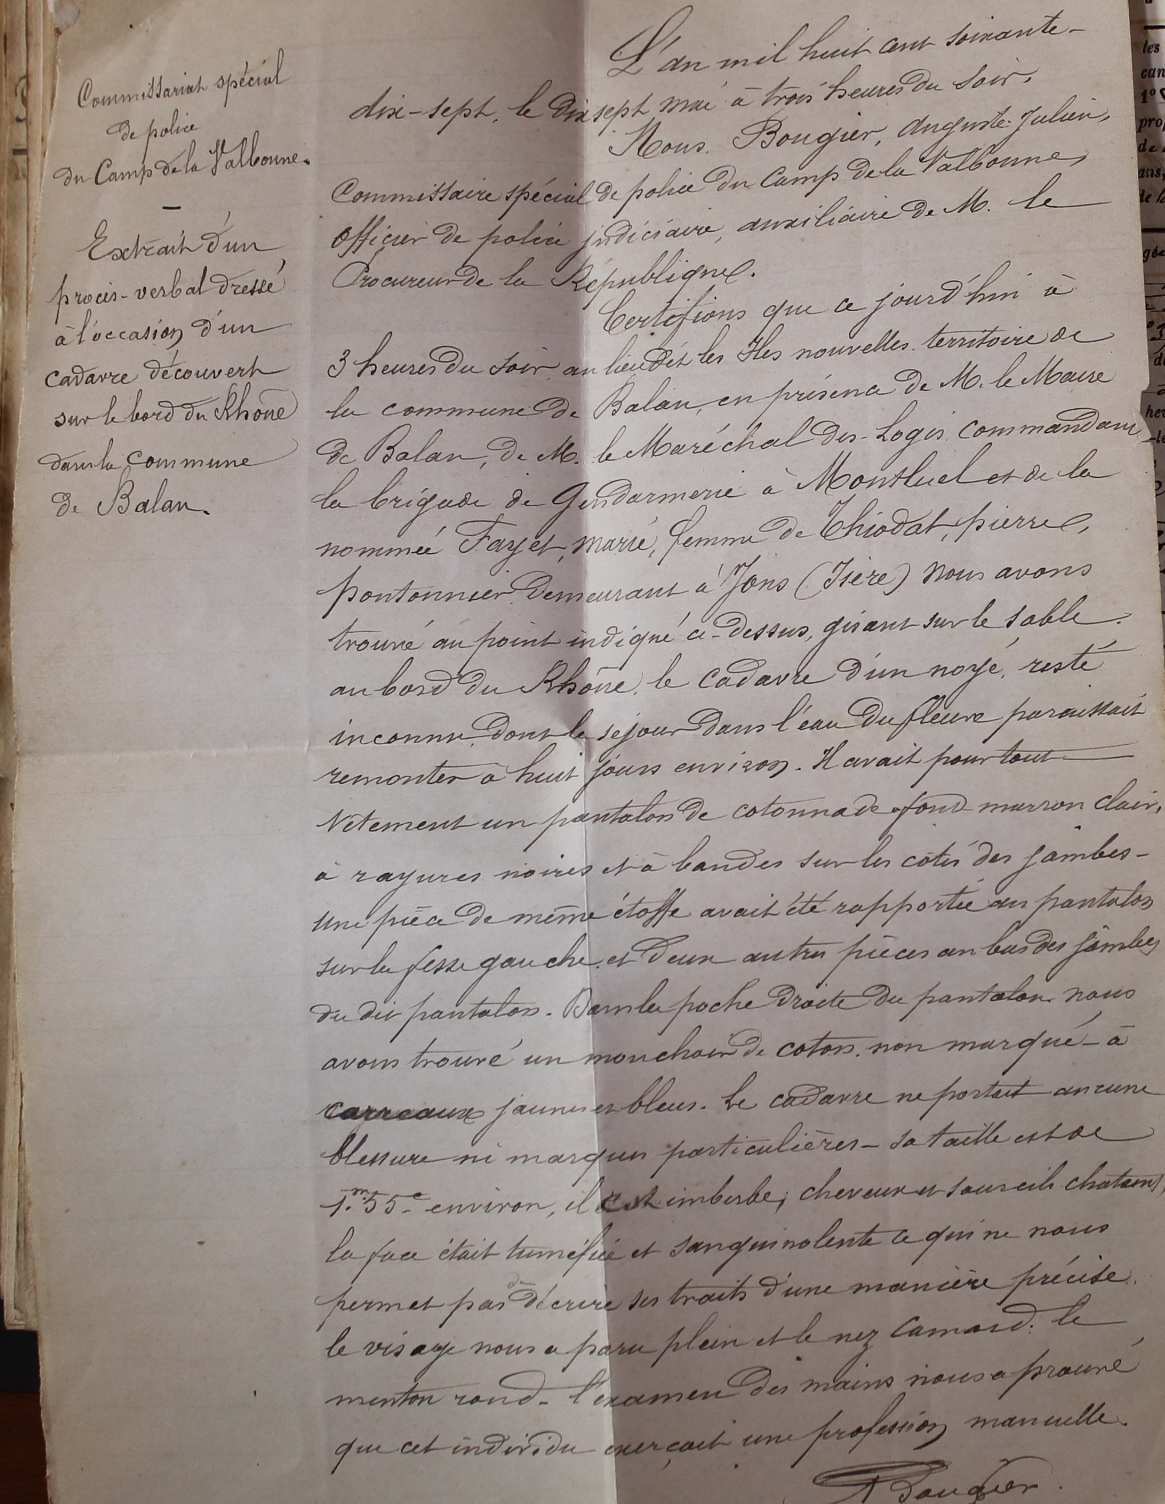 Commissariat spécial
de police
du Camp de la Valbonne.
—
Extrait d'un
procès-verbal dressé
à l'occasion d'un
cadavre découvert
sur le bord du Rhône
dans la commune
de Balan.
L'an mil huit cent soixante-
dix-sept, le dix sept mai à trois heures du soir.
Nous. Bougier, Auguste Julien,
Commissaire spécial de police du Camp de la Valbonne,
Officier de police judiciaire, auxiliaire de M. le
Procureur de la République.
Certifions que ce jourd'hui à
3 heures du soir, au lieu dit les Iles nouvelles, territoire de
la commune de Balan, en présence de M. le Maire
de Balan, de M. le Maréchal des-Logis commandant
la brigade de Gendarmerie à Montluel et de la
nommée Fayet, marie, femme de Thiodat, pierre,
pontonnier, demeurant à Jons (Isère) nous avons
trouvé au point indiqué ci-dessus, gisant sur le sable
au bord du Rhône, le cadavre d'un noyé, resté
inconnu, dont le séjour dans l'eau du fleuve paraissait
remonter à huit jours environ. Il avait pour tout
vêtement un pantalon de cotonnade fond marron clair,
à rayures noires et à bandes sur les côtés des jambes -
une pièce de même étoffe avait été rapportée au pantalon
sur la fesse gauche, et deux autres pièces au bas des jambes
du dit pantalon. Dans la poche droite du pantalon nous
avons trouvé un mouchoir de coton, non marqué - à
carreaux jaunes et bleus. Le cadavre ne portait aucune
blessure ni marques particulières - sa taille est de
1.m 55c environ, il est imberbe; cheveux et sourcils chatains
la face était tuméfiée et sanguinolente ce qui ne nous
permet pas de décrire ses traits d'une manière précise.
le visage nous a paru plein et le nez camard: le
menton rond - l'examen des mains nous a prouvé
que cet individu exerçait une profession manuelle.
A Bougier.